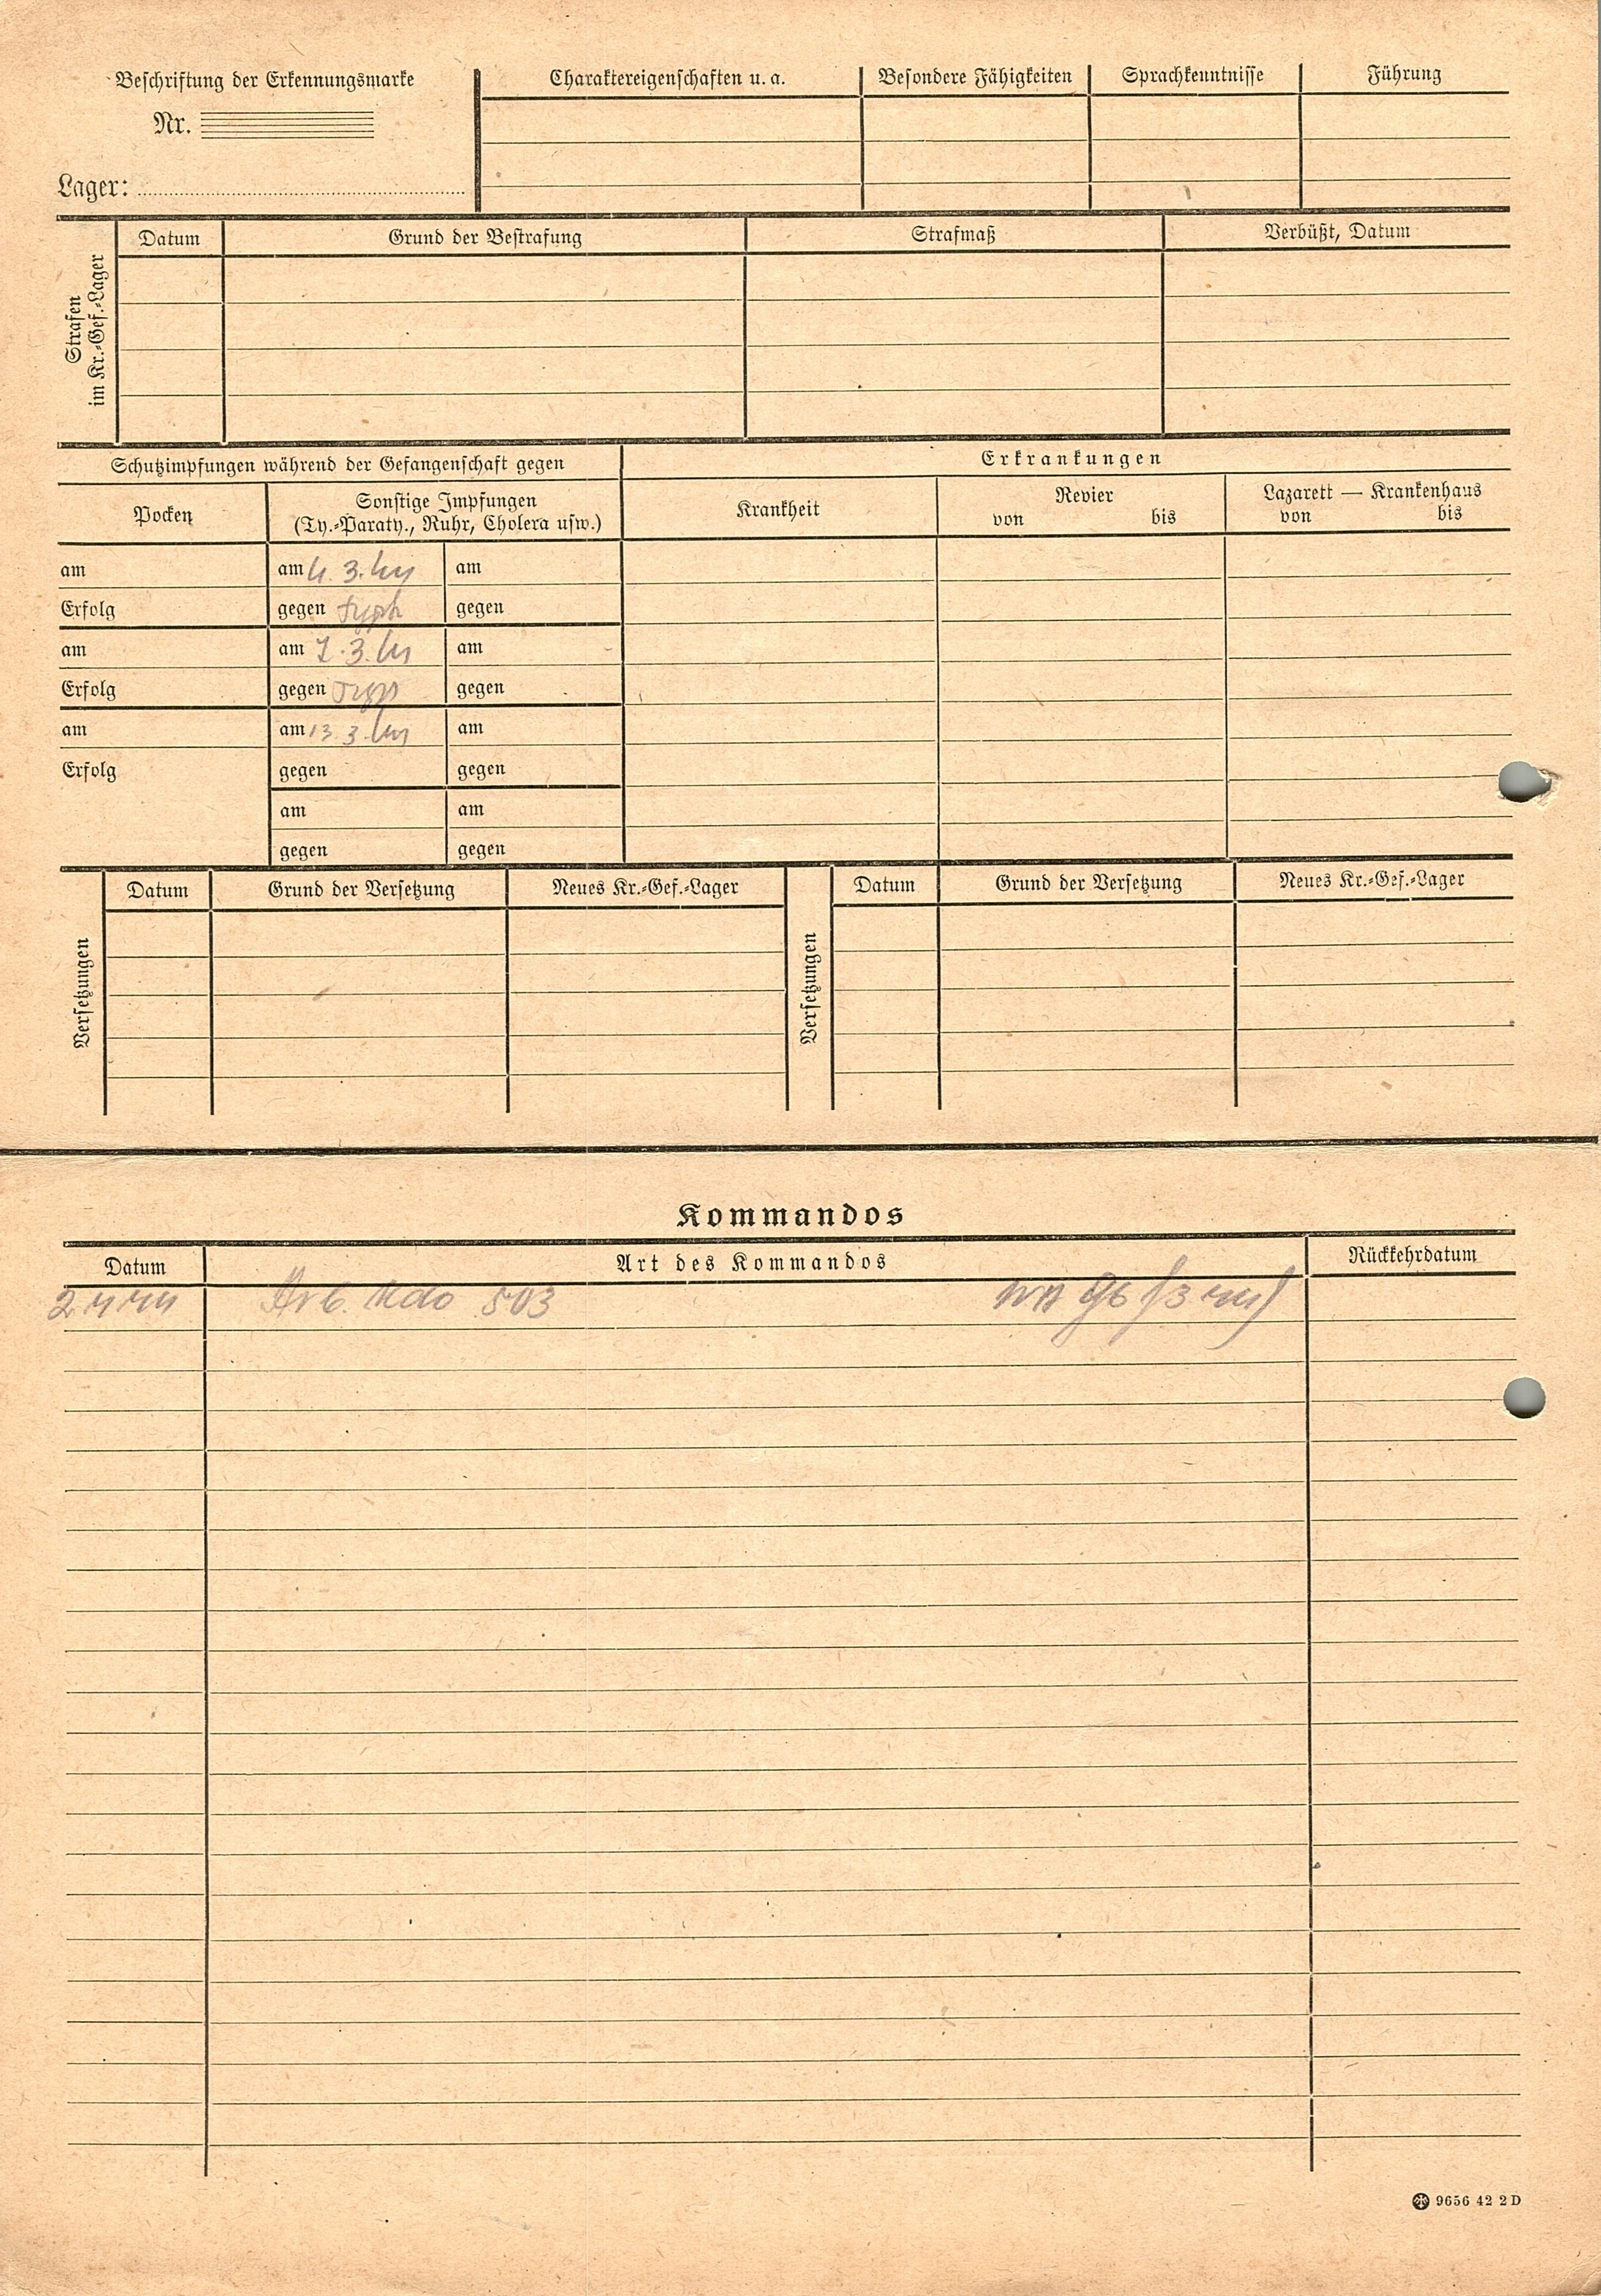 Beschriftung der Erkennungsmarke
Nr.
Lager:
Charaktereigenschaften u. a.
Besondere Fähigkeiten
Sprachkenntnisse
Führung
Strafen
im Kr.-Gef.-Lager
Datum
Grund der Bestrafung
Strafmaß
Verbüßt, Datum
Schutzimpfungen während der Gefangenschaft gegen
Erkrankungen
Pocken
Sonstige Impfungen
(Ty.-Paraty., Ruhr, Cholera usw.)
Krankheit
Revier
von bis
Lazarett — Krankenhaus
von bis
am am 4. 3. 44 am
Erfolg gegen Typh gegen
am am 7. 3. 44 am
Erfolg gegen Typh gegen
am am 13. 3. 44 am
Erfolg gegen gegen
am am
gegen gegen
Versetzungen
Datum
Grund der Versetzung
Neues Kr.-Gef.-Lager
Versetzungen
Datum
Grund der Versetzung
Neues Kr.-Gef.-Lager
Kommandos
Datum
Art des Kommandos
Rückkehrdatum
Arb. Kdo 503
9656 42 2 D